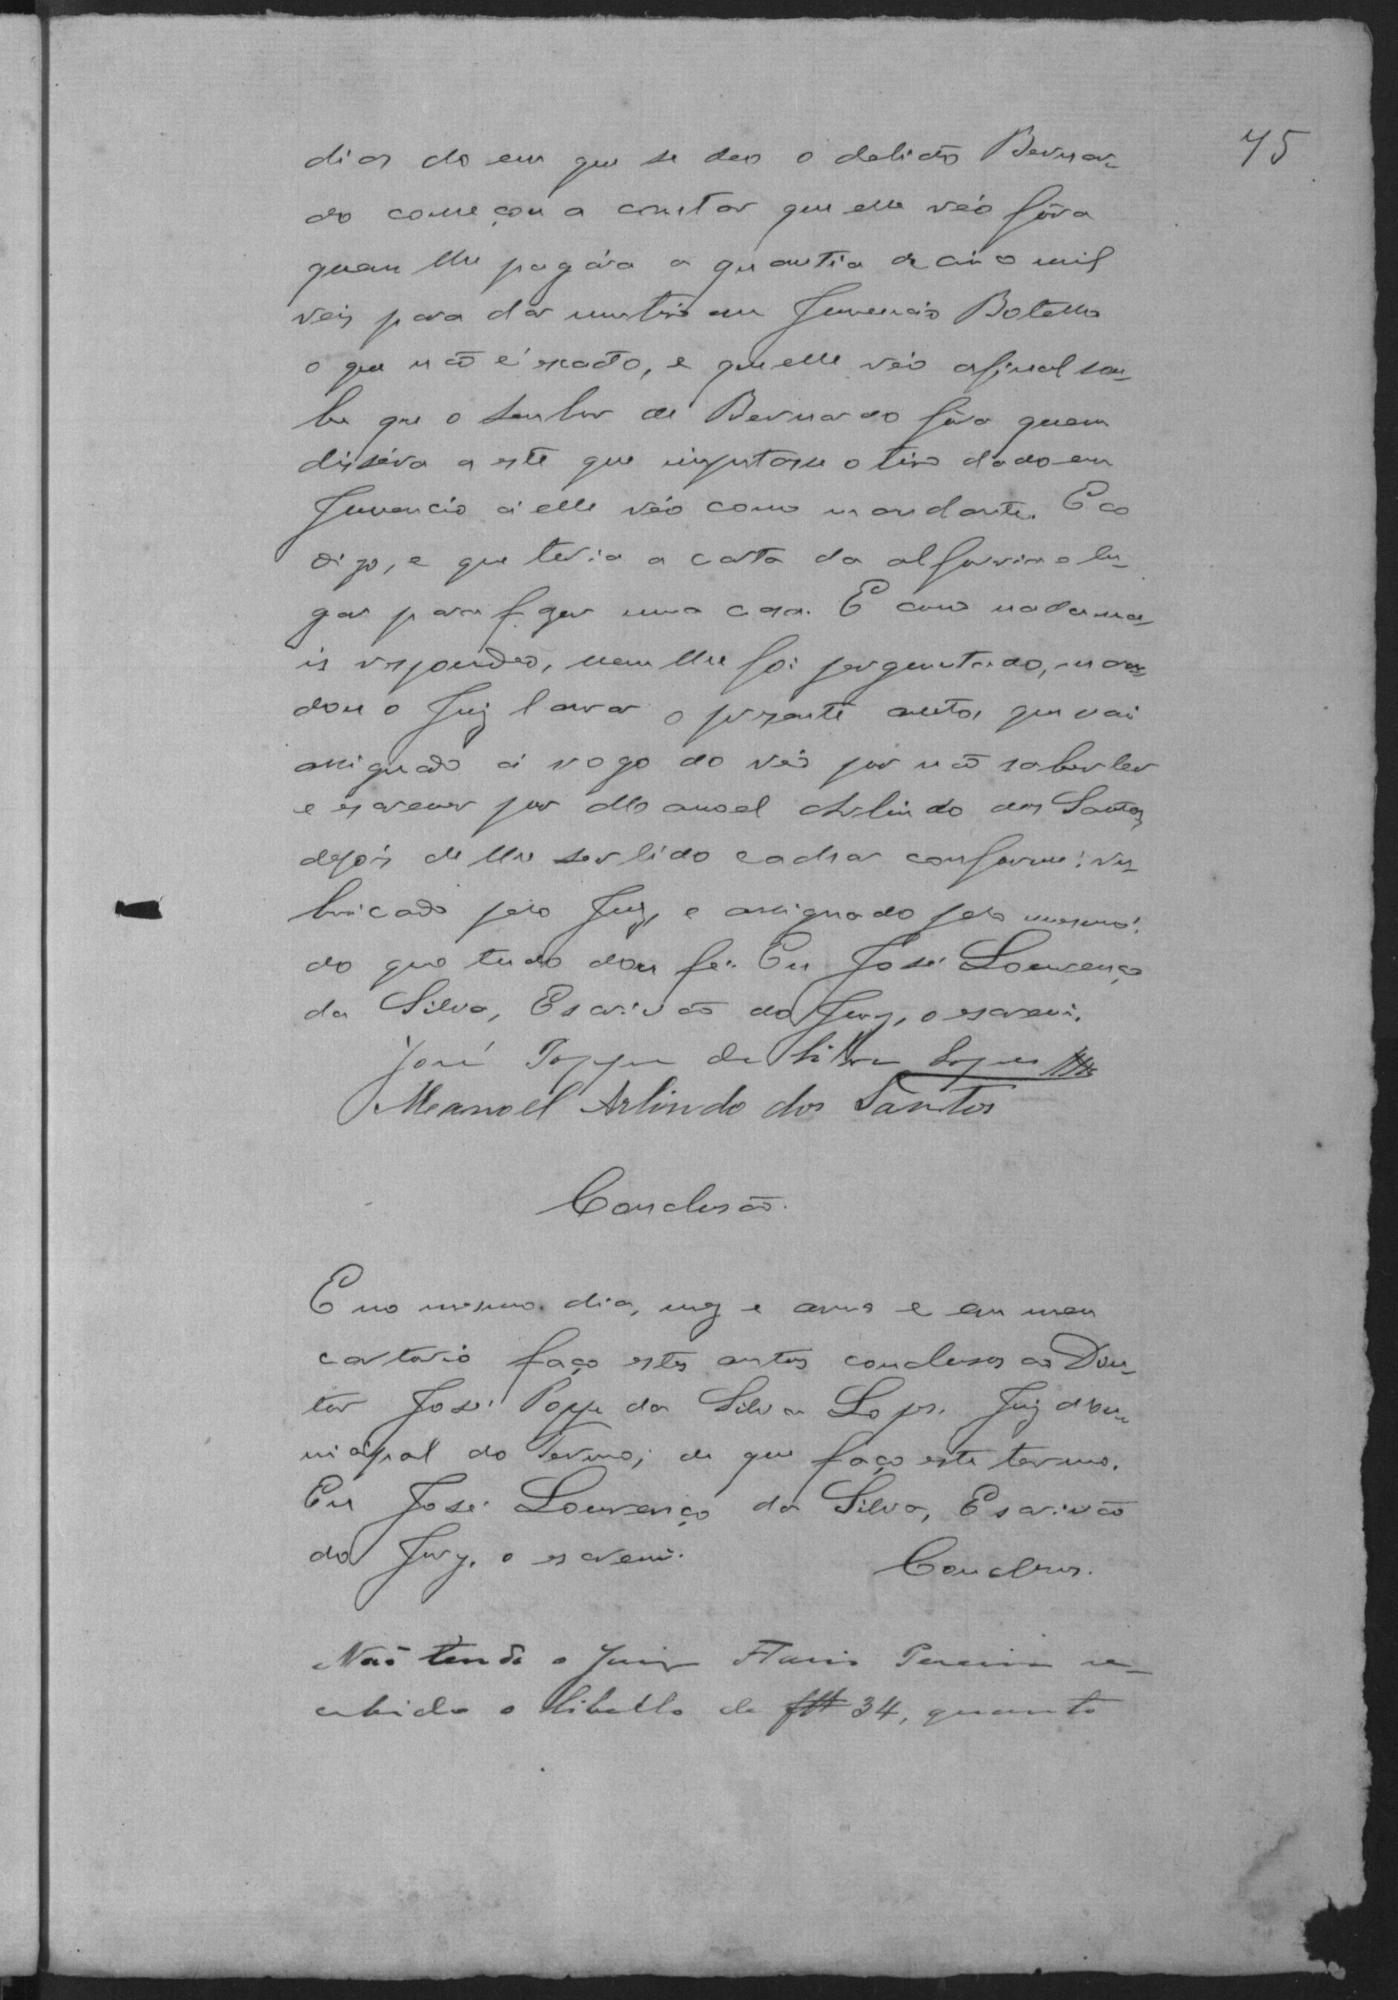 75
dias do em que se deo o delicto Bernar-
do começou a constar que elle réo fôra
quem lhe pagára a quantia de cinco mil
reis para dar um tiro em Juvencio Botelho
o que não é exacto, e que elle réo afinal sou-
be que o senhor de Bernardo fôra quem
dissera a este que imputasse o tiro dado em
Juvencio á elle réo como mandante. E co
digo, e que teria a carta da alforria e lu-
gar para fazer uma casa. E como nada ma-
is respondeo, nem lhe foi perguntado, man-
dou o Juiz lavrar o presente auto, que vai
assignado á rogo do réo por não saber ler
e escrever por Manoel Arlindo dos Santos,
depois de lhe ser lido e achar conforme; ru-
bricado pelo Juiz, e assignado pelo mesmo;
do que tudo dou fé. Eu José Lourenço
da Silva, Escrivão do Jury, o escrevi.
José Poppe da Silva Lopes
Manoel Arlindo dos Santos
Conclusão.
E no mesmo dia, mez e anno e em meu
cartorio faço estes autos conclusos ao Dou-
tor José Poppe da Silva Lopes. Juiz Mu-
nicipal do Termo; de que faço este termo.
Eu José Lourenço da Silva, Escrivão
do Jury, o escrevi.
Conclusos.
Não tendo o Juiz Flavio Pereira re-
cebido o libello de 34, quanto